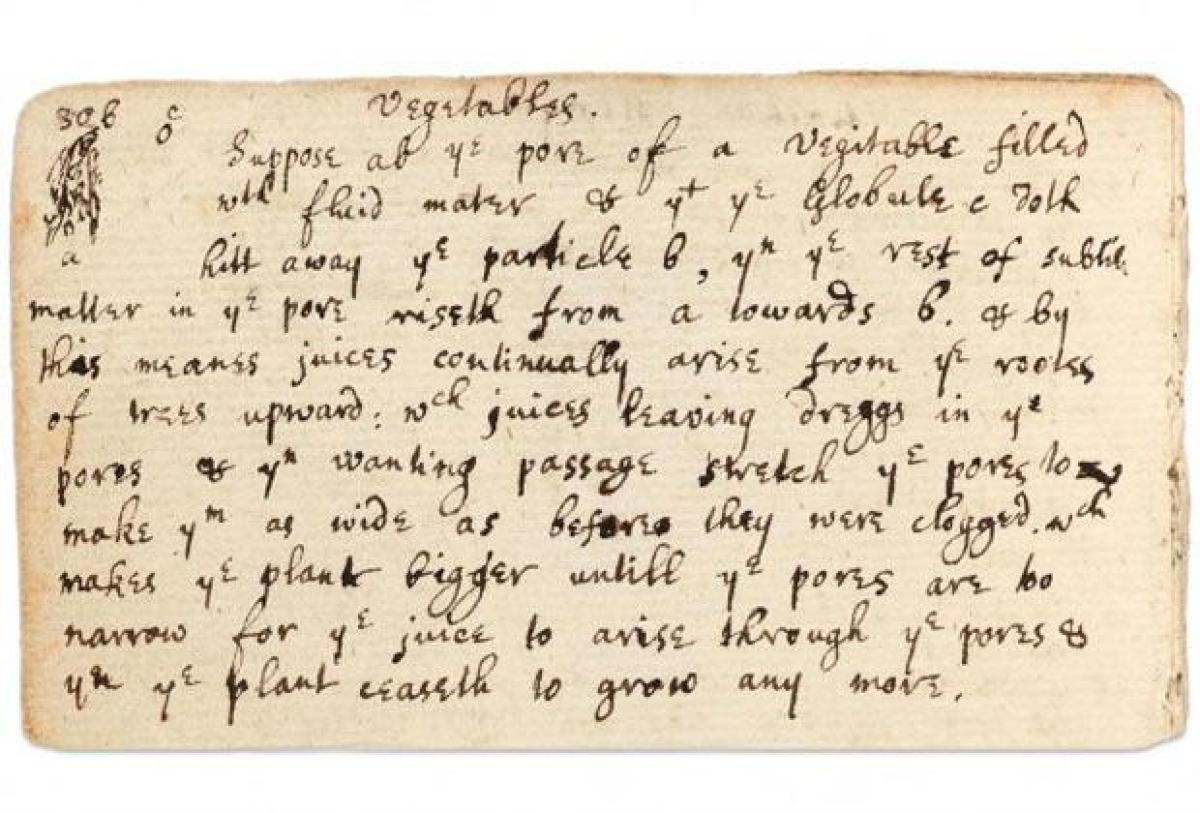 306 c Vegetables.
o Suppose ab yᵉ pore of a Vegitable filled
wᵗʰ fluid mater & yᵗ yᵉ Globule c doth
a hitt away yᵉ particle b, yⁿ yᵉ rest of subtile
matter in yᵉ pore riseth from a towards b. & by
this meanes juices continually arise from yᵉ rootes
of trees upward: wᶜʰ juices leaving dreggs in yᵉ
pores & yⁿ wanting passage stretch yᵉ pores to
make yᵐ as wide as before they were clogged. wᶜʰ
makes yᵉ plant bigger untill yᵉ pores are too
narrow for yᵉ juice to arise through yᵉ pores &
yⁿ yᵉ plant ceaseth to grow any more.